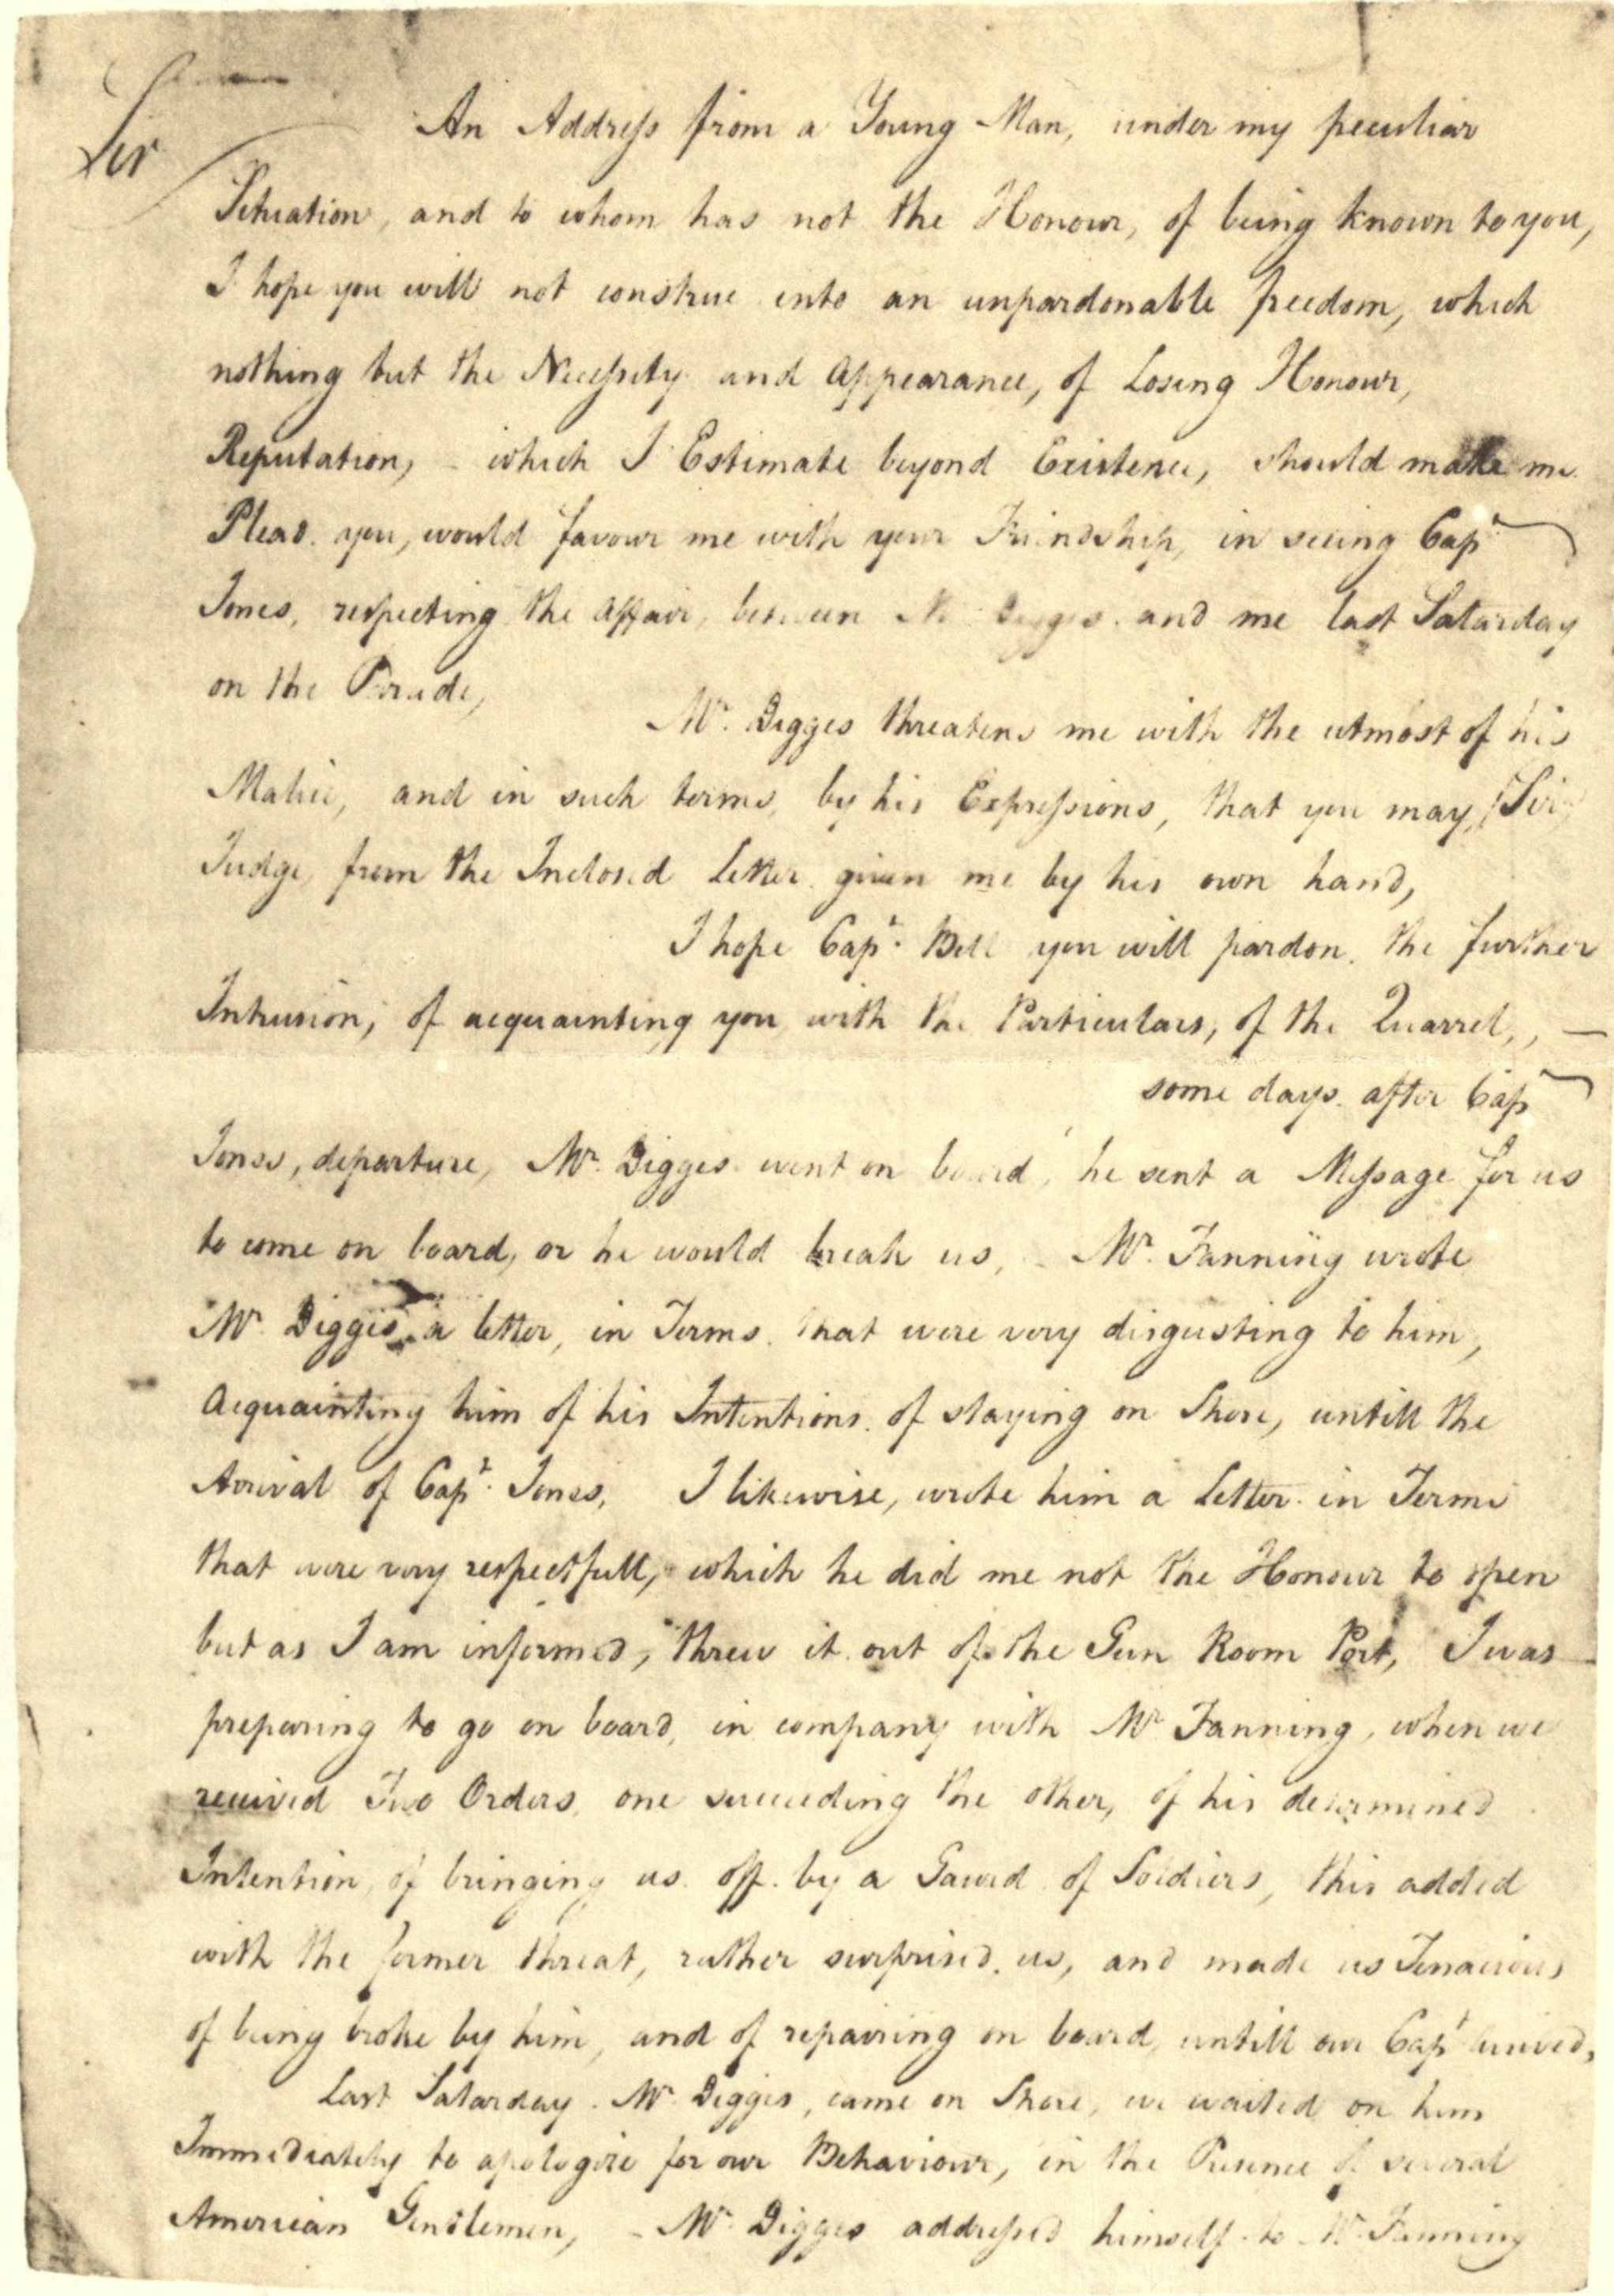 Sir
An Address from a Young Man, under my peculiar
Situation, and to whom has not the Honour, of being known to you,
I hope you will not construe into an unpardonable freedom, which
nothing but the Necessity and Appearance, of Losing Honour,
Reputation, - which I Estimate beyond Existence, should make me
Plead. you, would favour me with your Friendship, in seeing Capt
Jones, respecting the Affair, between Mr Digges. and me last Satarday
on the Parade,
Mr. Digges threatens me with the utmost of his
Malice, and in such terms, by his Expressions, that you may, (Sir)
Judge, from the Inclosed Letter given me by his own hand,
I hope Capt. Bell you will pardon. the further
Intrusion, of acquainting you with the Particulars, of the Quarrel,, —
some days. after Capt
Jones, departure, Mr. Digges went on board, he sent a Message for us
to come on board, or he would break us, - Mr. Fanning wrote
Mr. Digges a letter, in Terms. that were very disgusting to him,
Acquainting him of his Intentions. of staying on Shore, untill the
Arrival of Capt. Jones, I likewise, wrote him a Letter in Terms
that were very respectfull, which he did me not the Honour to open
but as I am informed, threw it out of the Gun Room Port, I was
preparing to go on board, in company with Mr Fanning, when we
received Two Orders, one succeeding the other, of his determined
Intention, of bringing us off. by a Gaurd of Soldiers, this added
with the former threat, rather surprised. us, and made us Tenacious
of being broke by him, and of repairing on board, untill our Capt arrived,
Last Satarday. Mr Digges, came on Shore, we waited on him
Immediately to apologize for our Behaviour, in the Presence of several
American Gentlemen, - Mr Digges addressed himself to Mr. Fanning